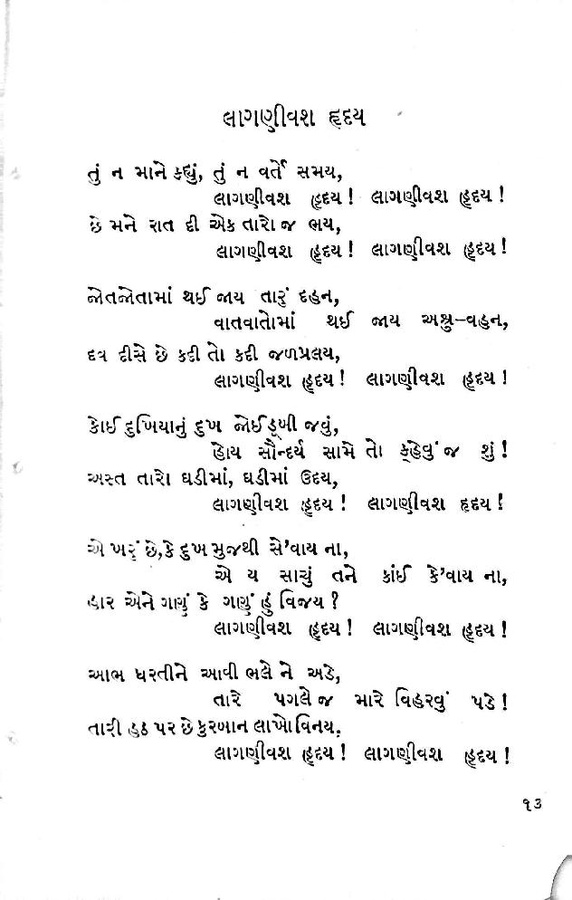 લાગણીવશ હૃદય
તું ન માને કહ્યું, તું ન વર્તે સમય,
લાગણીવશ હૃદય ! લાગણીવશ હૃદય !
છે મને રાત દી એક તારો જ ભય,
લાગણીવશ હૃદય ! લાગણીવશ હૃદય !
જોતજોતામાં થઈ જાય તારું દહન,
વાતવાતોમાં થઈ જાય અશ્રુ–વહન,
દવ દીસે છે કદી તો કદી જળપ્રલય,
લાગણીવશ હૃદય ! લાગણીવશ હૃદય !
કોઈ દુખિયાનું દુખ જોઈ ડૂખી જવું,
હોય સૌન્દર્ય સામે તો ક્હેવું જ શું !
અસ્ત તારો ઘડીમાં, ઘડીમાં ઉદય,
લાગણીવશ હૃદય ! લાગણીવશ હૃદય !
એ ખરું છે, કે દુખ મુજથી સે’વાય ના,
એ ય સાચું તને કાંઈ કે’વાય ના,
હાર એને ગણું કે ગણું હું વિજય ?
લાગણીવશ હૃદય ! લાગણીવશ હૃદય !
આભ ધરતીને આવી ભલે ને અડે,
તારે પગલે જ મારે વિહરવું પડે !
તારી હઠ પર છે કુરબાન લાખો વિનય.
લાગણીવશ હૃદય ! લાગણીવશ હૃદય !
૧૩